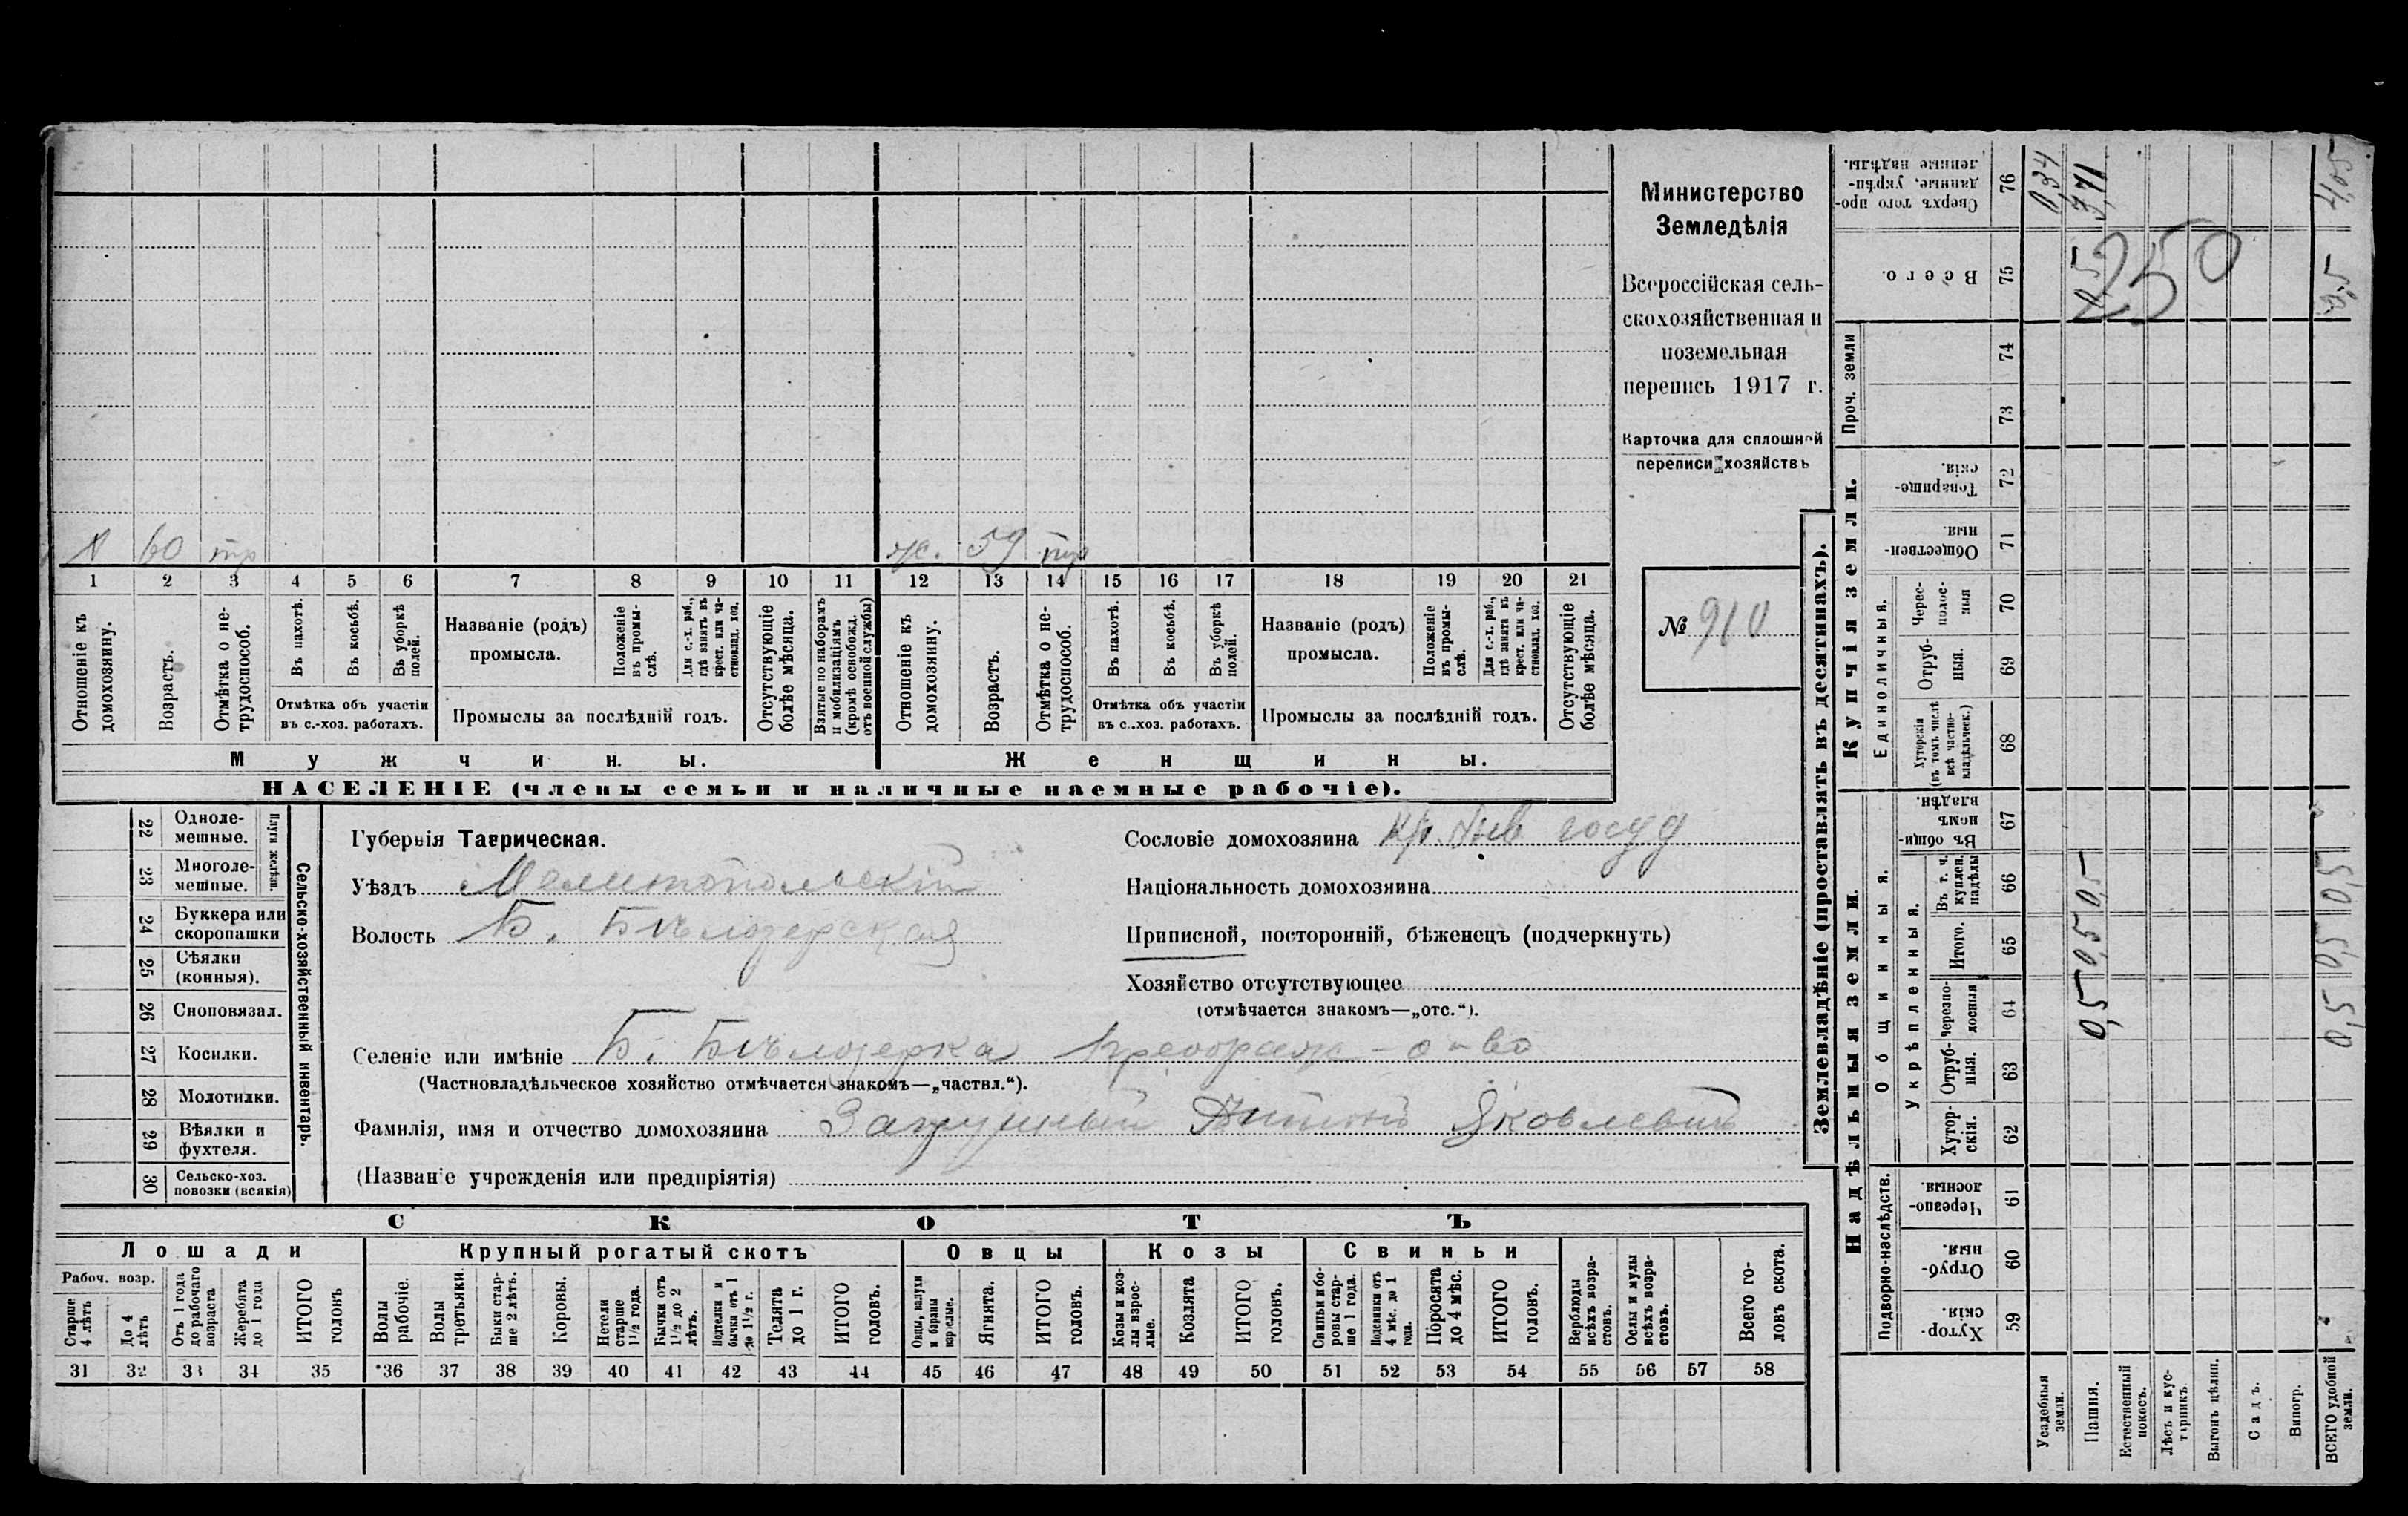 Х 60 тр ж. 59 тр
1 2 3 4 5 6 7 8 9 10 11 12 13 14 15 16 17 18 19 20 21
Отношеніе къ домохозяину.
Возрастъ.
Отмѣтка о не-
трудоспособ.
Въ пахотѣ.
Въ косьбѣ.
Въ уборкѣ
полей.
Отмѣтка объ участіи
въ с.-хоз. работахъ.
Названіе (родъ)
промысла.
Положеніе
въ промы-
слѣ.
Для с.-х. раб.,
гдѣ занятъ въ
крест. или ча-
стновлад. хоз.
Промыслы за послѣдній годъ.
Отсутствующіе
болѣе мѣсяца.
Взятые по наборамъ
и мобилизаціямъ
(кромѣ освобожд.
отъ военной службы)
Отношеніе къ
домохозяину.
Возрастъ.
Отмѣтка о не-
трудоспособ.
Въ пахотѣ.
Въ косьбѣ.
Въ уборкѣ
полей.
Отмѣтка объ участіи
въ с..хоз. работахъ.
Названіе (родъ)
промысла.
Положеніе
въ промы-
слѣ.
Для с.-х. раб.,
гдѣ занята въ
крест. или ча-
стновлад. хоз.
Промыслы за послѣдній годъ.
Отсутствующіе
болѣе мѣсяца.
Мужчины. Женщины.
НАСЕЛЕНІЕ (члены семьи и наличные наемные рабочіе).
Министерство
Земледѣлія
Всероссійская сель-
скохозяйственная и
поземельная
перепись 1917 г.
Карточка для сплошной
переписи хозяйствъ
№ 910
22 Одноле-
мешные.
23 Многоле-
мешные.
Плуги желѣзн.
24 Буккера или
скоропашки
25 Сѣялки
(конныя).
26 Сноповязал.
27 Косилки.
28 Молотилки.
29 Вѣялки и
фухтеля.
30 Сельско-хоз.
повозки (всякія)
Сельско-хозяйственный инвентарь.
Губернія Таврическая.
Уѣздъ Мелитопольскій
Волость Б. Бѣлозерская
Сословіе домохозяина кр. госуд
Національность домохозяина
Приписной, посторонній, бѣженецъ (подчеркнуть)
Хозяйство отсутствующее
(отмѣчается знакомъ—„отс.“).
Селеніе или имѣніе Б. Бѣлозерка Преображ-о-во
(Частновладѣльческое хозяйство отмѣчается знакомъ—„частвл.“).
Фамилія, имя и отчество домохозяина Антонъ Яковлевичъ
(Названіе учрежденія или предпріятія)
СКОТЪ
Лошади Крупный рогатый скотъ Овцы Козы Свиньи
Рабоч. возр.
Старше
4 лѣтъ
До 4
лѣтъ
Отъ 1 года
до рабочаго
возраста
Жеребята
до 1 года
ИТОГО
головъ
Волы
рабочіе.
Волы
третьяки.
Быки стар-
ше 2 лѣтъ.
Коровы.
Нетели
старше
1½ года.
Бычки отъ
1½ до 2
лѣтъ.
Подтелки и
бычки отъ 1
до 1½ г.
Телята
до 1 г.
ИТОГО
головъ.
Овцы, валухи
и бараны
взрослые.
Ягнята.
ИТОГО
головъ.
Козы и коз-
лы взрос-
лые.
Козлята
ИТОГО
головъ.
Свиньи и бо-
ровы стар-
ше 1 года.
Подсвинки отъ
4 мѣс. до 1
года.
Поросята
до 4 мѣс.
ИТОГО
головъ.
Верблюды
всѣхъ возра-
стовъ.
Ослы и мулы
всѣхъ возра-
стовъ.
Всего го-
ловъ скота.
31 32 33 34 35 36 37 38 39 40 41 42 43 44 45 46 47 48 49 50 51 52 53 54 55 56 57 58
Землевладѣніе (проставлять въ десятинахъ).
Надѣльныя земли. Купчія земли. Проч. земли
Подворно-наслѣдств. Общинныя. Единоличныя.
Укрѣпленныя.
Хутор-
скія. 59
Отруб-
ныя. 60
Черезпо-
лосныя. 61
Хутор-
скія. 62
Отруб-
ныя. 63
Черезпо-
лосныя 64
Итого. 65
Въ т. ч.
куплен.
надѣлы 66
Въ общин-
номъ
владѣн. 67
Хуторскія
(въ томъ числѣ
всѣ частно-
владѣльческ.) 68
Отруб-
ныя. 69
Черес-
полос-
ныя 70
Обществен-
ныя 71
Товарище-
скія. 72
73
74
Всего. 75
Сверхъ того про-
данные, укрѣп-
ленные надѣлы. 76
Усадебныя
земли. 0,34
Пашня. 0,5 0,5 0,5 0,5 3,71
250
Естественный
покосъ.
Лѣсъ и кус-
тарникъ.
Выгонъ цѣлин.
Садъ.
Виногр.
ВСЕГО удобной
земли. 0,5 0,5 0,5 0,5 4,05